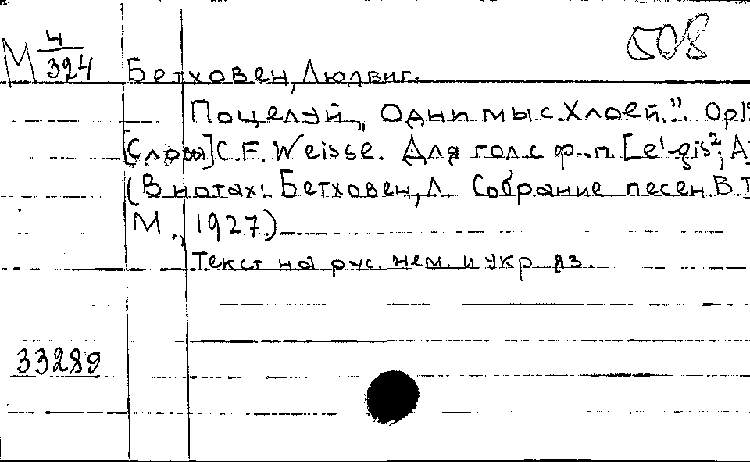 М 4/324
508
Бетховен, Людвиг.
Поцелуй „Одни мы с Хлоей." Op
[Слова] C.F. Weisse. Для гол. с ф.-п. [e'-gis²; A
(В нотах: Бетховен, Л. Собрание песен. В.
М., 1927.)
Текст на рус. нем. и укр яз.
33289